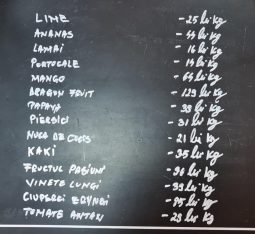 LIME - 25 lei kg
ANANAS - 44 lei kg
LAMAI - 16 lei kg
PORTOCALE - 14 lei kg
MANGO - 64 lei kg
DRAGON FRUIT - 129 lei kg
PAPAYA - 39 lei kg
PIERSICI - 31 lei kg
NUCA DE COCOS - 21 lei kg
KAKI - 35 lei kg
FRUCTUL PASIUNI - 98 lei kg
VINETE LUNGI - 39 lei kg
CIUPERCI ERYNGI - 75 lei kg
TOMATE - 29 lei kg